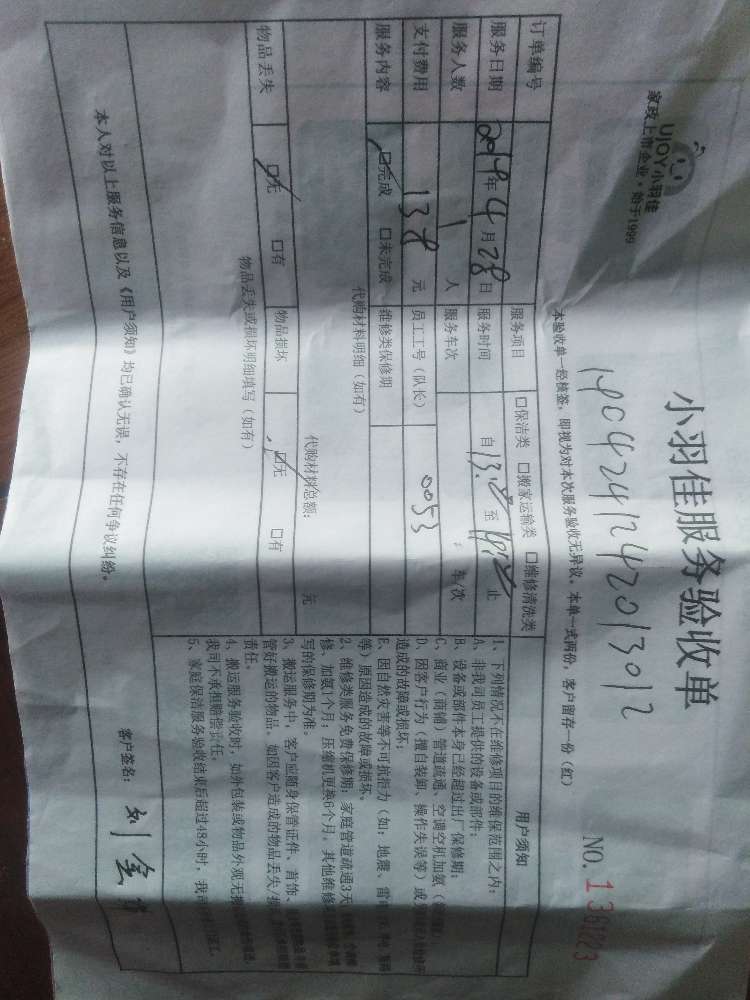 UJOY小羽佳
家政上市企业，始于1999
小羽佳服务验收单
NO. 1361223
本验收单一经核签，即视为对本次服务验收无异议。本单一式两份，客户留存一份（红）
订单编号
服务项目 口保洁类 口搬家运输类 口维修清洗类
服务日期 2019年4月28日 服务时间 自 至 止
服务人数 1 人 服务车次 车/次
支付费用 138 元 员工工号（队长） 0053
服务内容 口完成 口未完成 维修类保修期
代购材料明细（如有）
代购材料总额： 元
物品丢失 口无 口有 物品损坏 口无 口有
物品丢失或损坏明细填写（如有）
用户须知
1、下列情况不在维修项目的维保范围之内：
A、非我司员工提供的设备或部件；
B、设备或部件本身已经超过出厂保修期；
C、商业（商铺）管道疏通、空调空机加氨
D、因客户行为（擅自装卸、操作失误等）或
造成的故障或损坏；
E、因自然灾害等不可抗拒力（如：地震、雷电
等）原因造成的故障或损坏。
2、维修类服务免费保修期：家庭管道疏通3天
修、加氨1个月；压缩机更换6个月。其他维修
写的保修期为准。
3、搬运服务中，客户应随身保管证件、首饰、
管好搬运的物品。如因客户造成的物品丢失/损
责任。
4、搬运服务验收时，如外包装或物品外观无损
我司不承担赔偿责任。
5、家庭保洁服务验收结束后超过48小时，我司
本人对以上服务信息以及《用户须知》均已确认无误，不存在任何争议纠纷。
客户签名： 刘金